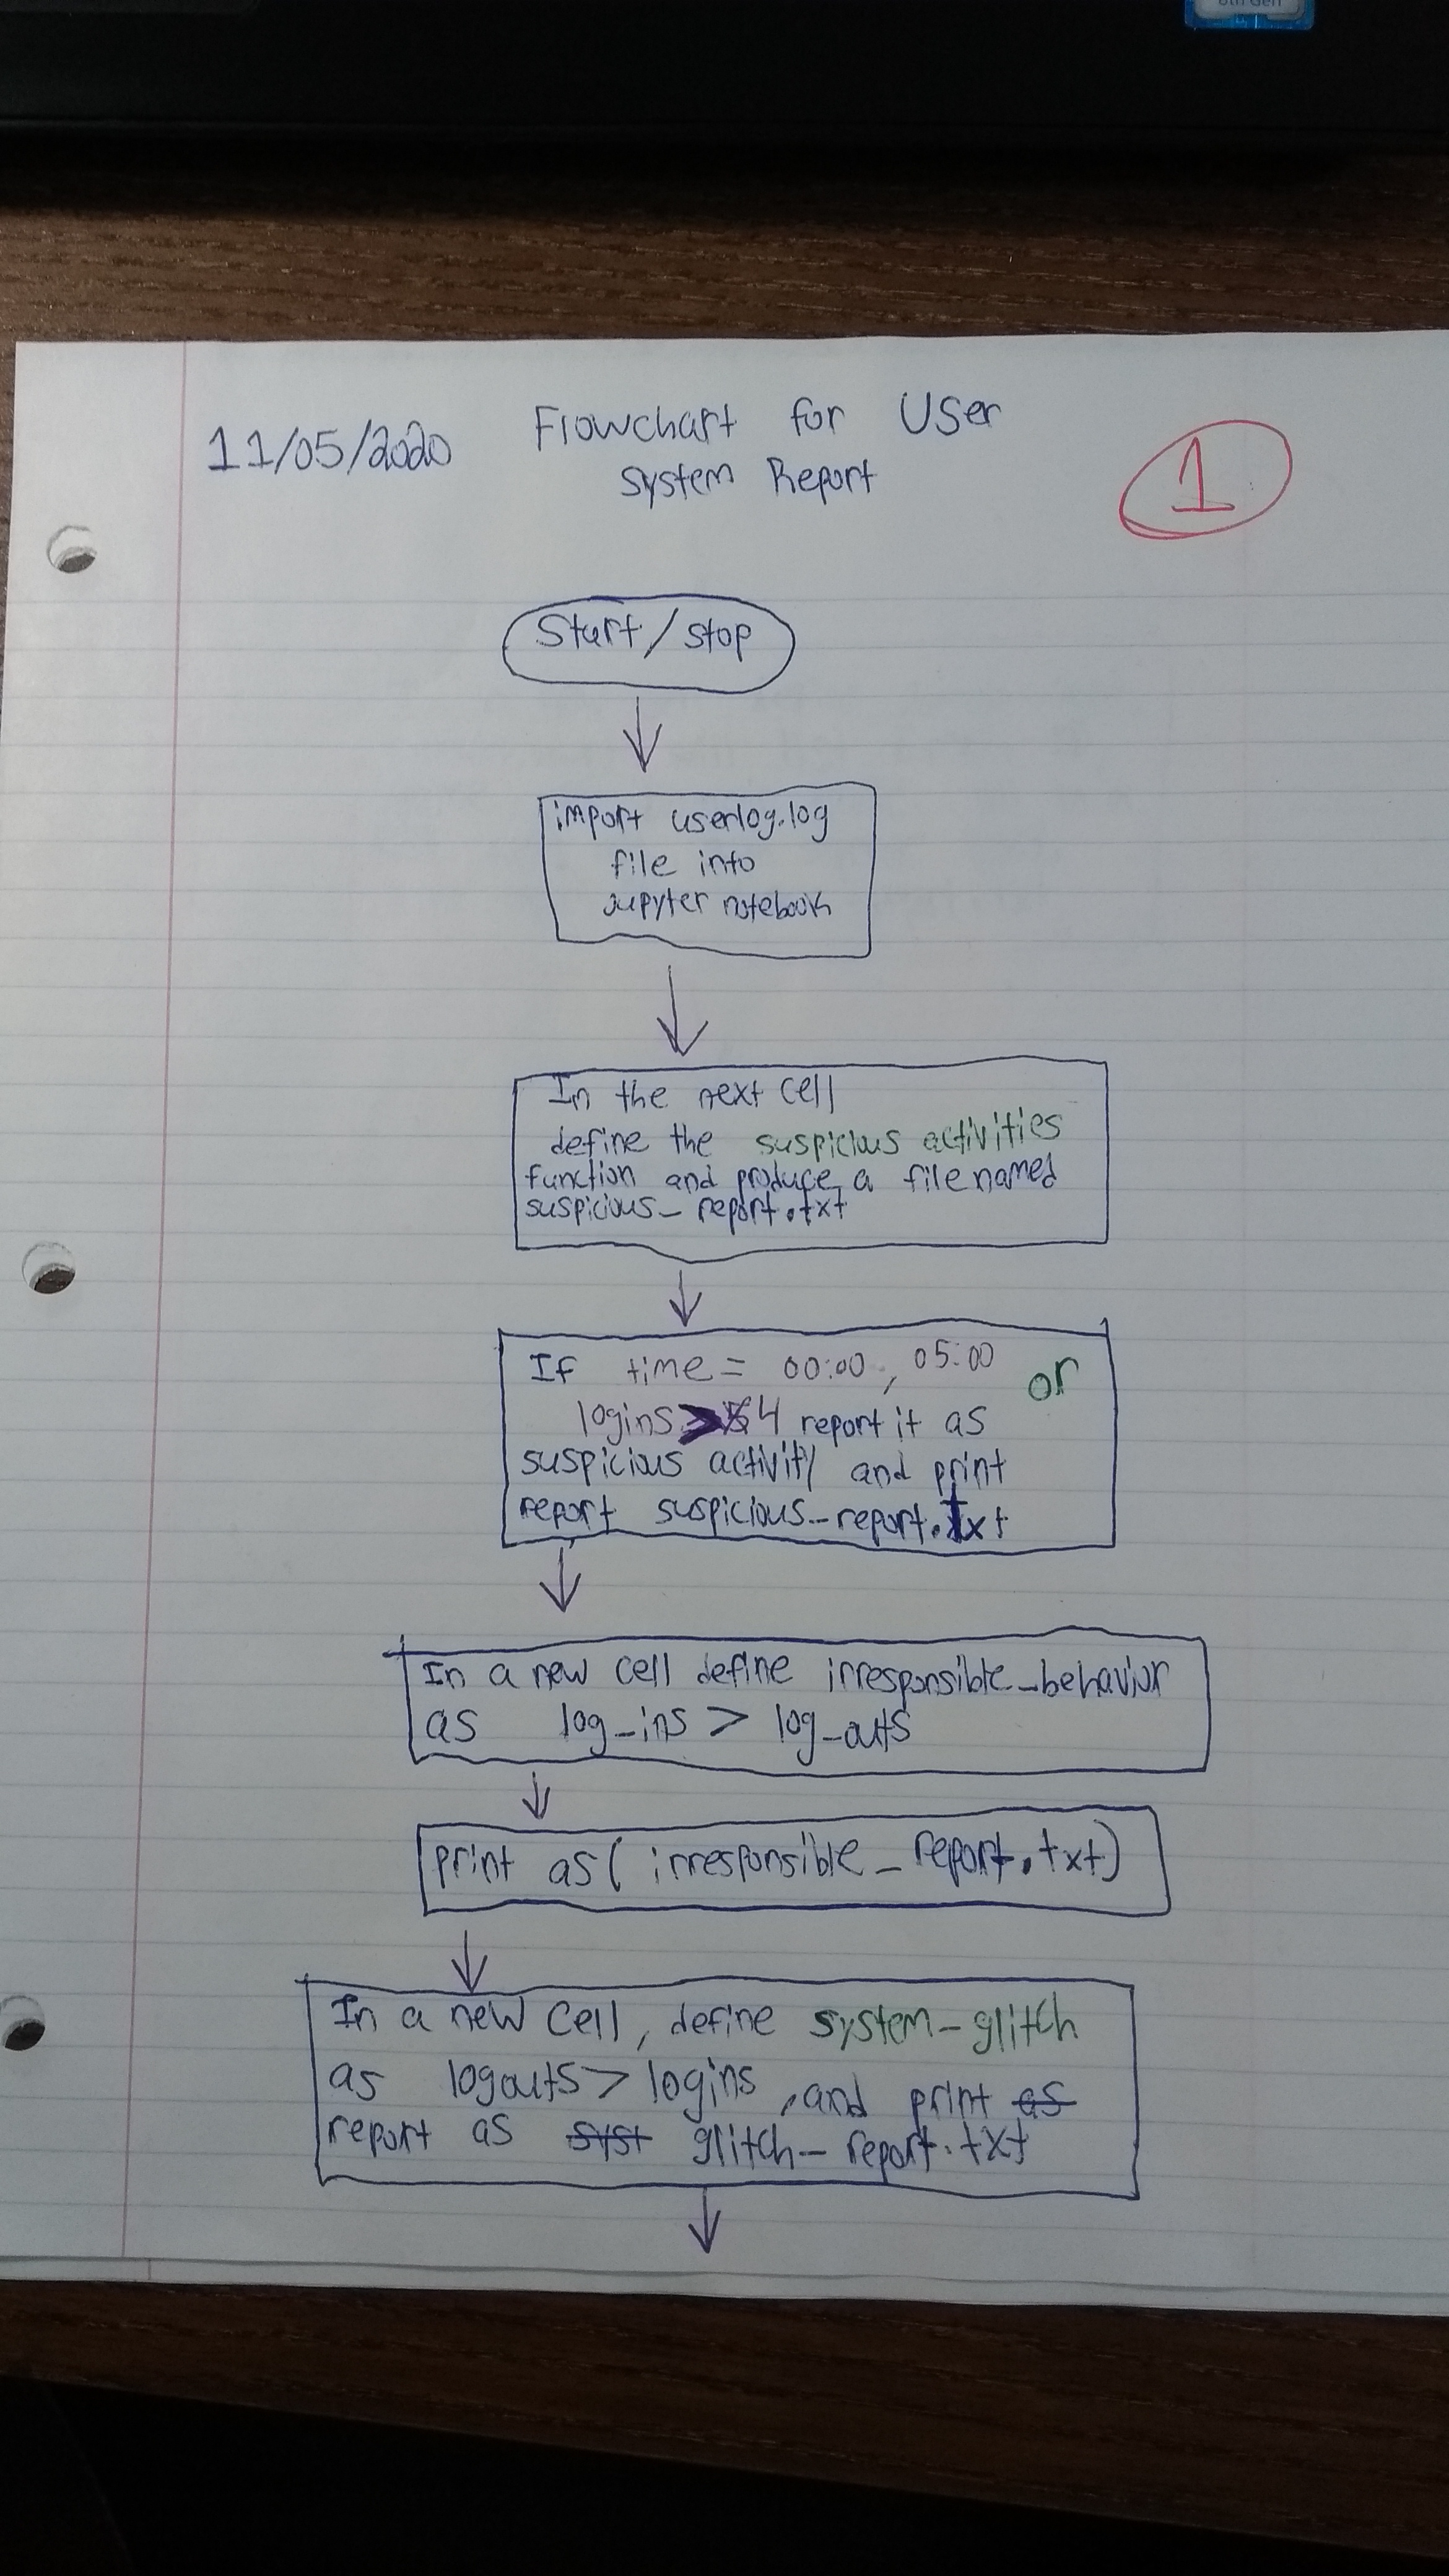 8th Gen
11/05/2020
Flowchart for User
system Report
1
Start/stop
import userlog.log
file into
Jupyter notebook
In the next cell
define the suspicious activities
function and produce a file named
suspicious_report.txt
If time = 00:00, 05:00 or
logins > 4 report it as
suspicious activity and print
report suspicious_report.txt
In a new cell define irresponsible_behavior
as log_ins > log_outs
print as( irresponsible_report.txt)
In a new cell, define system_glitch
as logouts > logins, and print as
report as syst glitch_report.txt